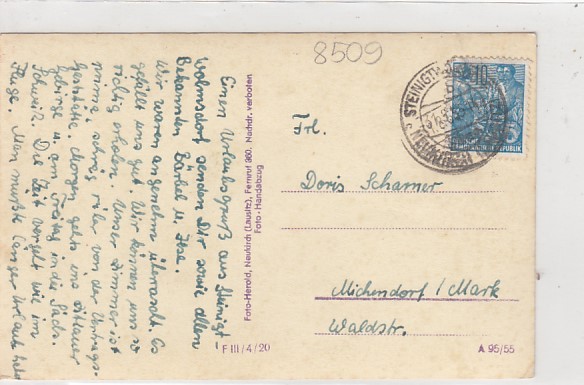 8509
Einen Urlaubsgruß aus Steinigt-
wolmsdorf senden Dir sowie allen
Bekannten Bärbel u. Ilse.
Wir waren angenehm überrascht. Es
gefällt uns gut. Wir können uns so
richtig erholen. Unser Zimmer ist
prima, schräg rüber von der Vertrags-
gaststätte. Morgen geht's ins Zittauer
Gebirge u. am Freitag in die Sächs.
Schweiz. Die Zeit vergeht wie im
Fluge. Man müßte länger Urlaub hab
Foto-Herold, Neukirch (Lausitz), Fernruf 360. Nachdr. verboten
Foto-Handabzug
F III/4/20
STEINIGTW
10
DEUTSCHE DEMOKRATISCHE REPUBLIK
Frl.
Doris Schamer
Michendorf/Mark
Waldstr.
A 95/55